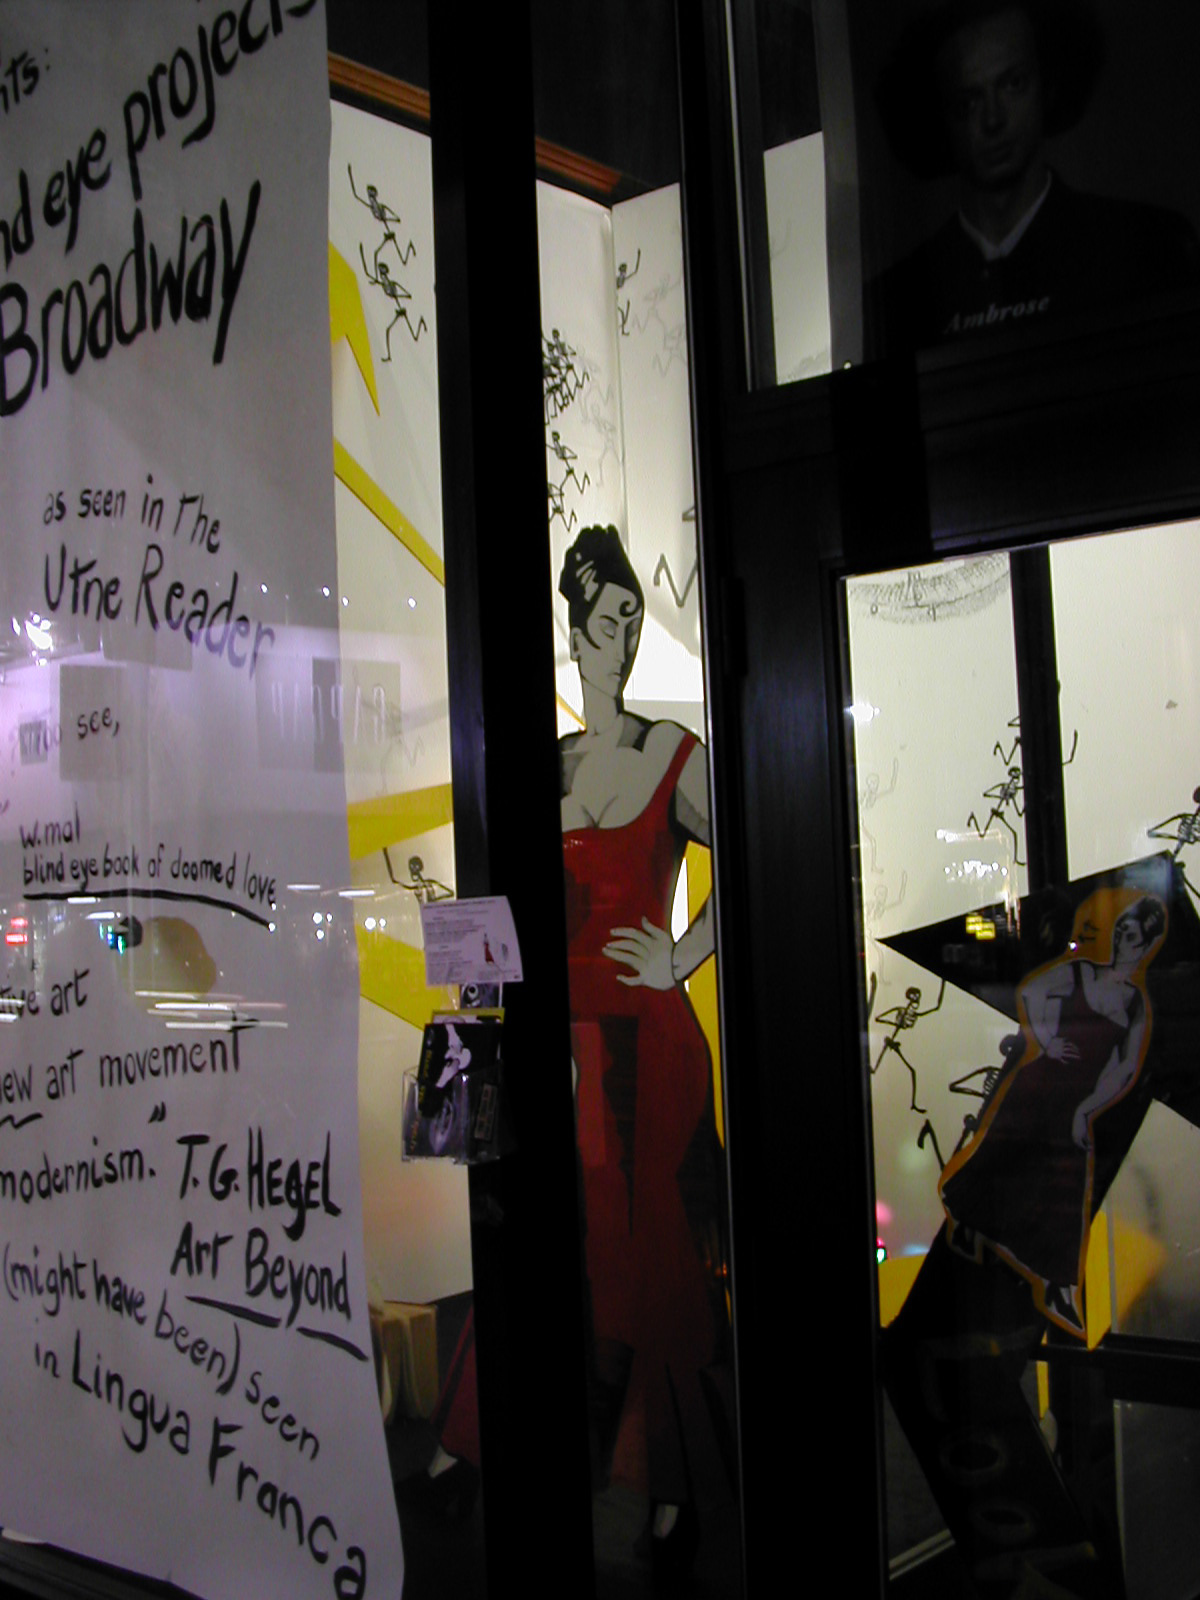 nts:
nd eye projects
Broadway
as seen in the
Utne Reader
see,
w.mal
blind eye book of doomed love
tive art
new art movement
modernism." T.G. HEGEL
Art Beyond
(might have been) seen
in Lingua Franca
Ambrose